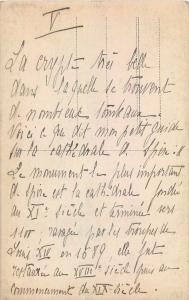 V
La crypte très belle
dans laquelle se trouvent
de nombreux tombeaux.
Voici ce que dit mon petit guide
sur la cathédrale de Spire:
Le monument le plus important
de Spire est la cathédrale
au XIe siècle et terminée vers
1100 ravagée par les troupes de
Louis XIV en 1689 elle fut
restaurée au XVIIIe siècle puis au
commencement du XIXe siècle.